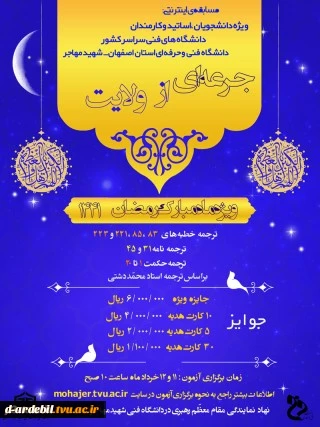 مسابقه‌ی اینترنتی:
ویژه دانشجویان، اساتید و کارمندان
دانشگاه های فنی سراسر کشور
دانشگاه فنی و حرفه‌ای استان اصفهان - شهید مهاجر
جرعه‌ای از ولایت
ویژه ماه مبارک رمضان ۱۴۴۱
ترجمه خطبه‌های ۸۳، ۸۵، ۲۲۱ و ۲۲۳
ترجمه نامه ۳۱ و ۴۵
ترجمه حکمت ۱ تا ۲۰
براساس ترجمه استاد محمد دشتی
جوایز
جایزه ویژه ۶/۰۰۰/۰۰۰ ریال
۱۰ کارت هدیه ۴/۰۰۰/۰۰۰ ریال
۵ کارت هدیه ۲/۰۰۰/۰۰۰ ریال
۳۰ کارت هدیه ۱/۱۰۰/۰۰۰ ریال
زمان برگزاری آزمون: ۱۱ و ۱۲ خرداد ماه ساعت ۱۰ صبح
اطلاعات بیشتر راجع به نحوه برگزاری آزمون در سایت mohajer.tvu.ac.ir
نهاد نمایندگی مقام معظم رهبری در دانشگاه فنی شهید
d-ardebil.tvu.ac.ir